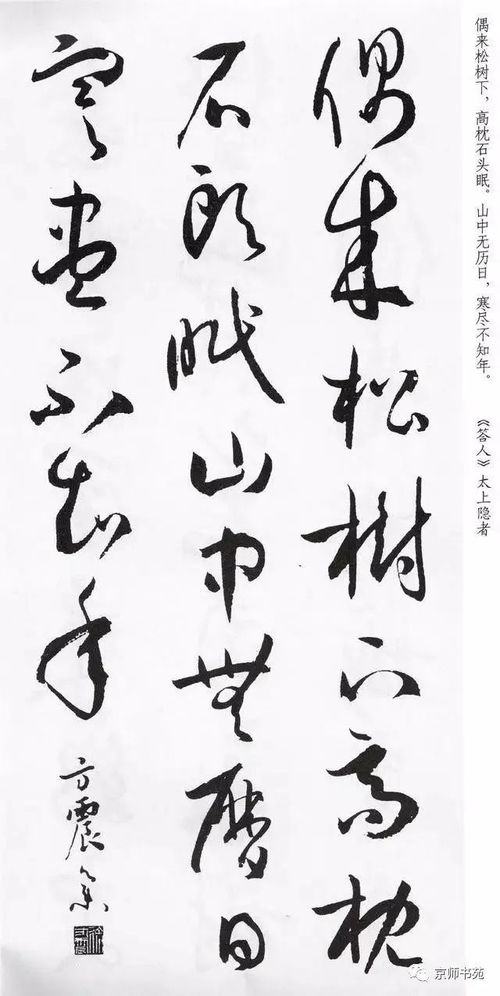 偶来松树下，高枕石头眠。山中无历日，寒尽不知年。　《答人》太上隐者
偶来松樹下高枕
石頭眠山中無曆日
寒盡不知年
方震
京师书苑